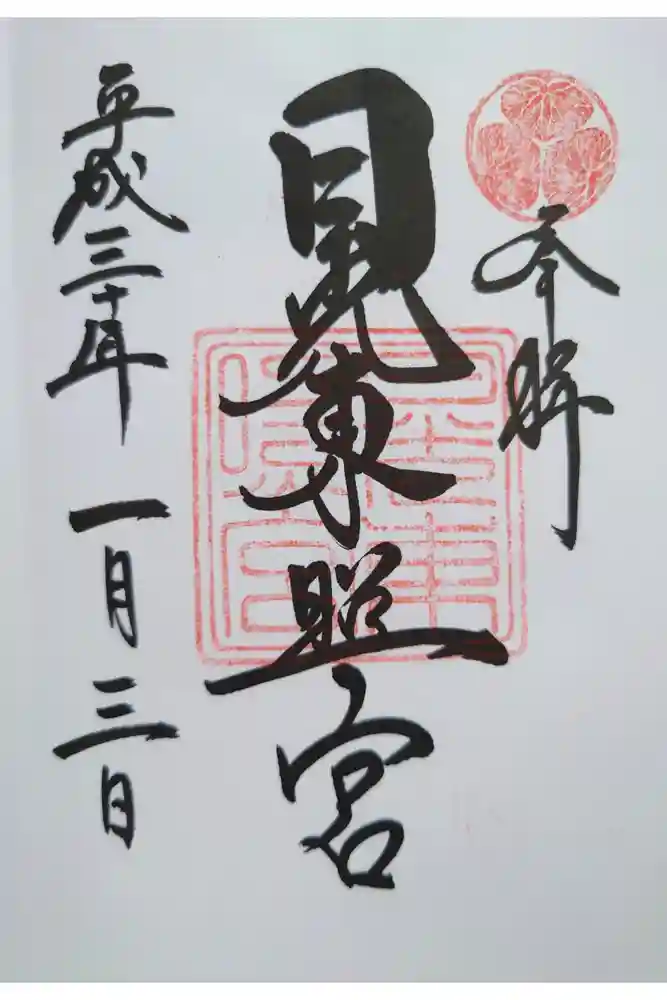 奉拝
東照宮
平成三十年一月三日